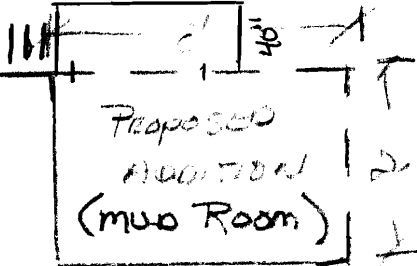 40"
PROPOSED
ADDITION
(MUD ROOM)